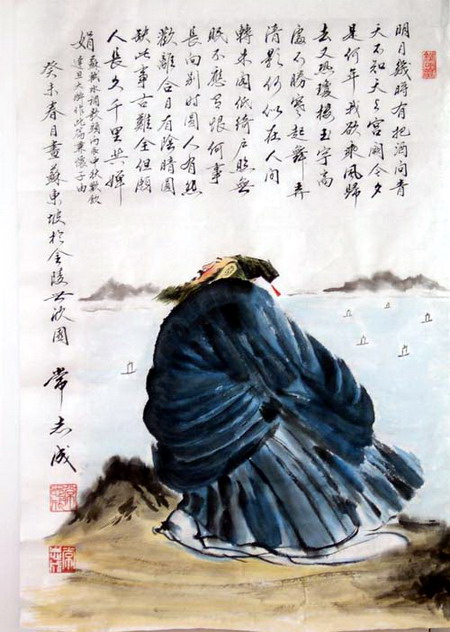 明月幾時有把酒問青
天不知天上宮闕今夕
是何年我欲乘風歸
去又恐瓊樓玉宇高
處不勝寒起舞弄
清影何似在人間
轉朱閣低綺戶照無
眠不應有恨何事
長向別時圓人有悲
歡離合月有陰晴圓
缺此事古難全但願
人長久千里共嬋
娟
蘇軾水調歌頭丙辰中秋歡飲
達旦大醉作此篇兼懷子由
癸未春月畫蘇東坡於金陵
常志成